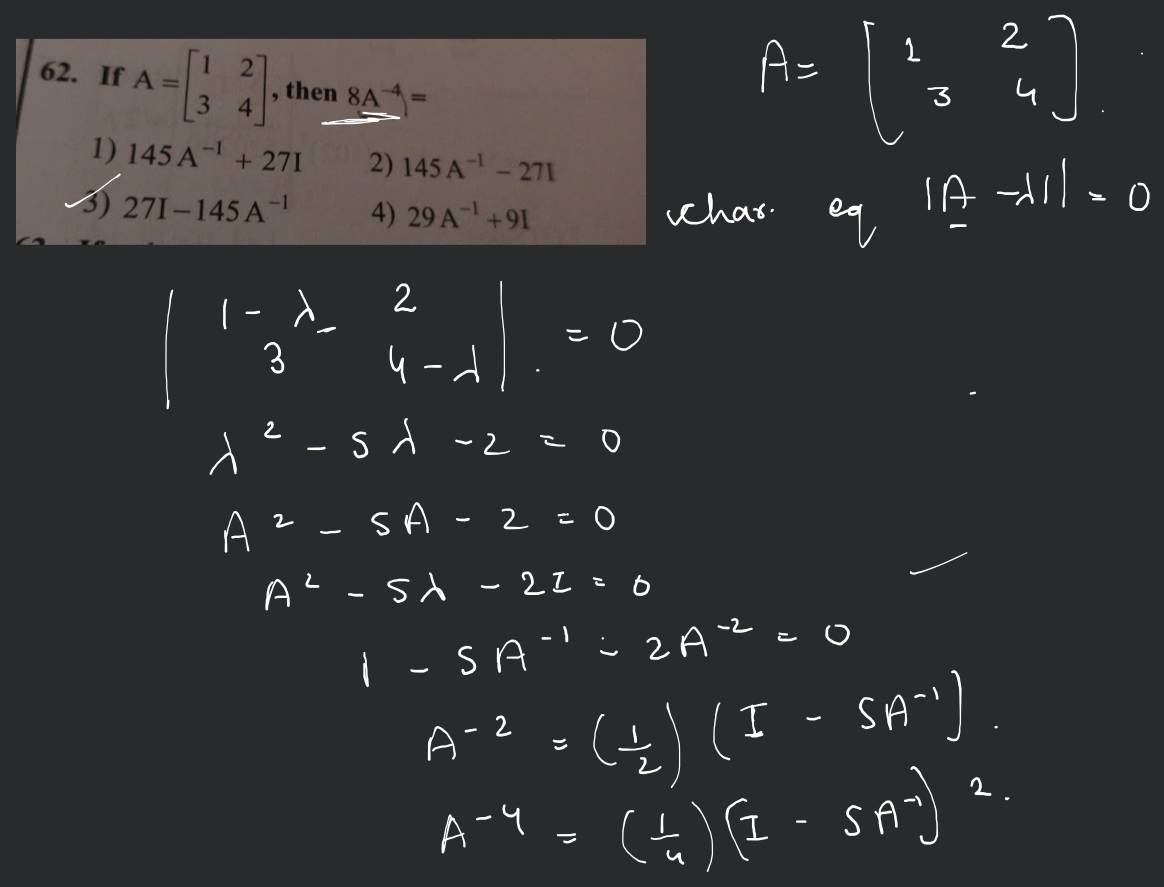 62. If A = [1 2 3 4], then 8A⁻⁴ =
1) 145 A⁻¹ + 27I 2) 145 A⁻¹ – 27I
3) 27I – 145 A⁻¹ 4) 29 A⁻¹ + 9I
A = [1 2 3 4].
char. eq |A - λI| = 0
|1 - λ 2 3 4 - λ| = 0
λ² - 5λ - 2 = 0
A² - 5A - 2 = 0
A² - 5λ - 2I = 0
1 - 5A⁻¹ - 2A⁻² = 0
A⁻² = (1/2) (I - 5A⁻¹).
A⁻⁴ = (1/4) (I - 5A⁻¹)².